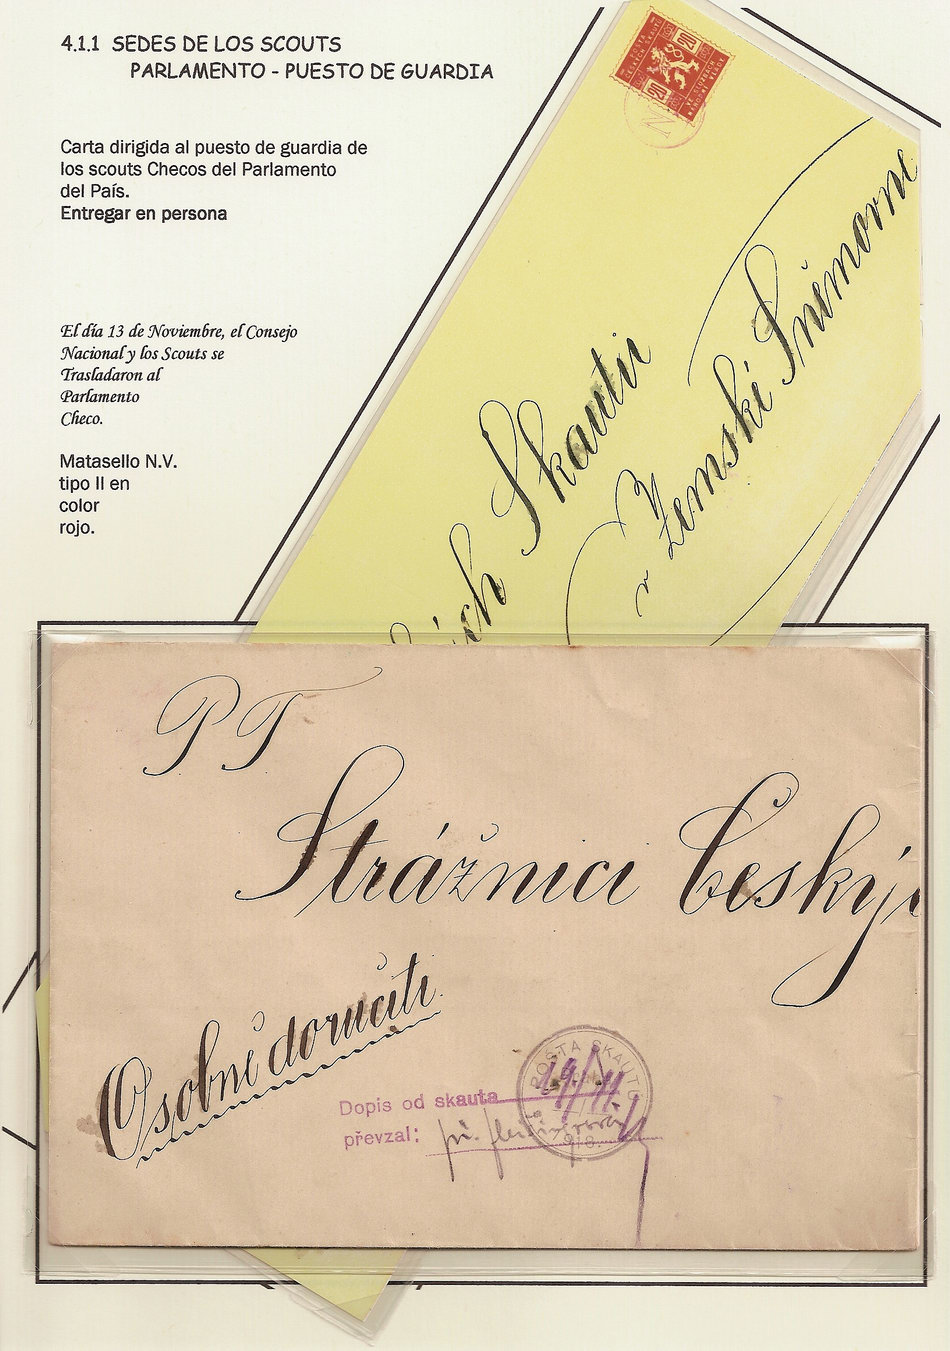 4.1.1 SEDES DE LOS SCOUTS
PARLAMENTO - PUESTO DE GUARDIA
Carta dirigida al puesto de guardia de
los scouts Checos del Parlamento
del País.
Entregar en persona
El día 13 de Noviembre, el Consejo
Nacional y los Scouts se
Trasladaron al
Parlamento
Checo.
Matasello N.V.
tipo II en
color
rojo.
POŠTA
ČESKÝCH SKAUTŮ
20 20
VE SLUŽBÁCH
NÁRODNÍ VLÁDY
N
ých Skautů
v Zemské Sněmovně
P T
Strážnici Český
Osobně doručiti.
POŠTA SKAUTŮ
19/11
Dopis od skauta
převzal: